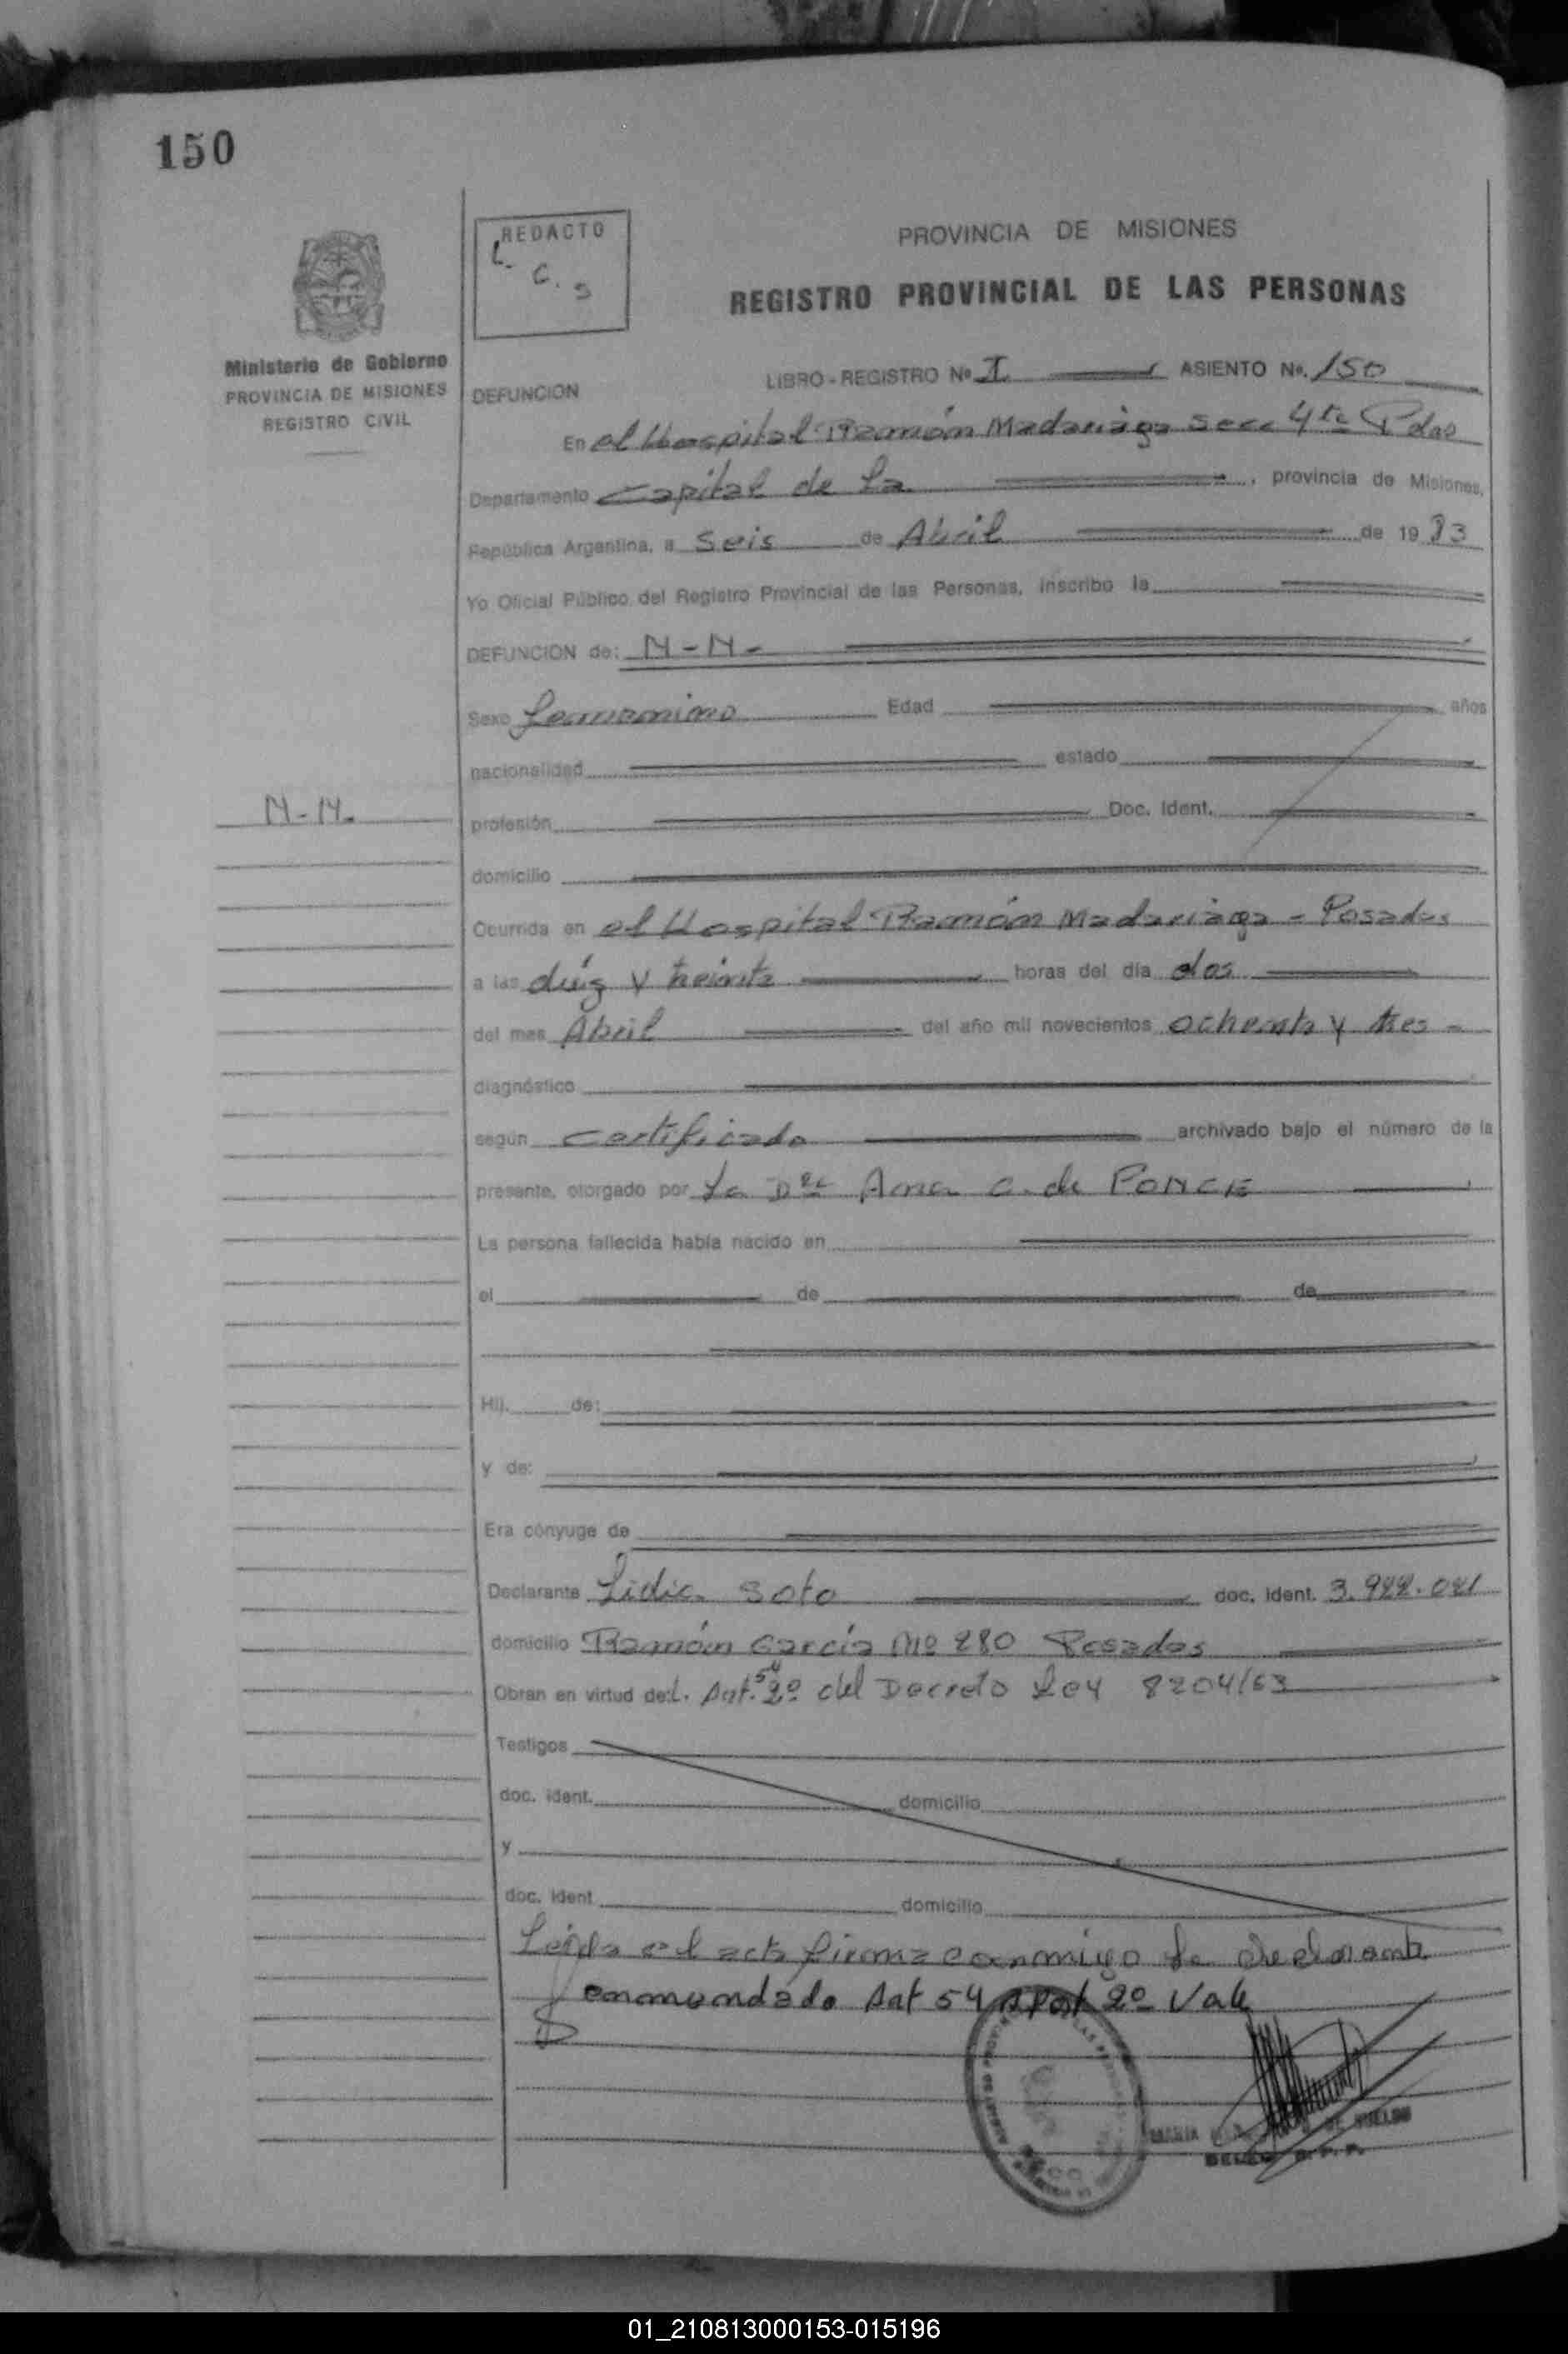 150
REDACTO
L. C. S
PROVINCIA DE MISIONES
REGISTRO PROVINCIAL DE LAS PERSONAS
Ministerio de Gobierno
PROVINCIA DE MISIONES
REGISTRO CIVIL
DEFUNCION
LIBRO - REGISTRO Nº I ASIENTO Nº. 150
En el Hospital Ramón Madariaga Secc 4ta Pdas
Departamento Capital de La , provincia de Misiones,
República Argentina, a Seis de Abril de 1983
Yo Oficial Público del Registro Provincial de las Personas, inscribo la
DEFUNCION de: N-N-
Sexo Femenino Edad años
nacionalidad estado
N-N-
profesión Doc. Ident.
domicilio
Ocurrida en el Hospital Ramón Madariaga - Posadas
a las diéz y treinta horas del día dos
del mes Abril del año mil novecientos ochenta y tres -
diagnóstico
según certificado archivado bajo el número de la
presente, otorgado por La Dra Ana C. de PONCE
La persona fallecida había nacido en
el de de
Hij. de:
y de:
Era cónyuge de
Declarante Lidia Soto doc. ident. 3.922.021
domicilio Ramón García Nº 280 Posadas
Obran en virtud de: l. Art. 54 2º del Decreto Ley 8204/63
Testigos
doc. ident. domicilio
y
doc. ident domicilio
Leída el acta firma conmigo la declarante
enmendado Art 54 Apart 2º Vale
MARIA DE
01_210813000153-015196